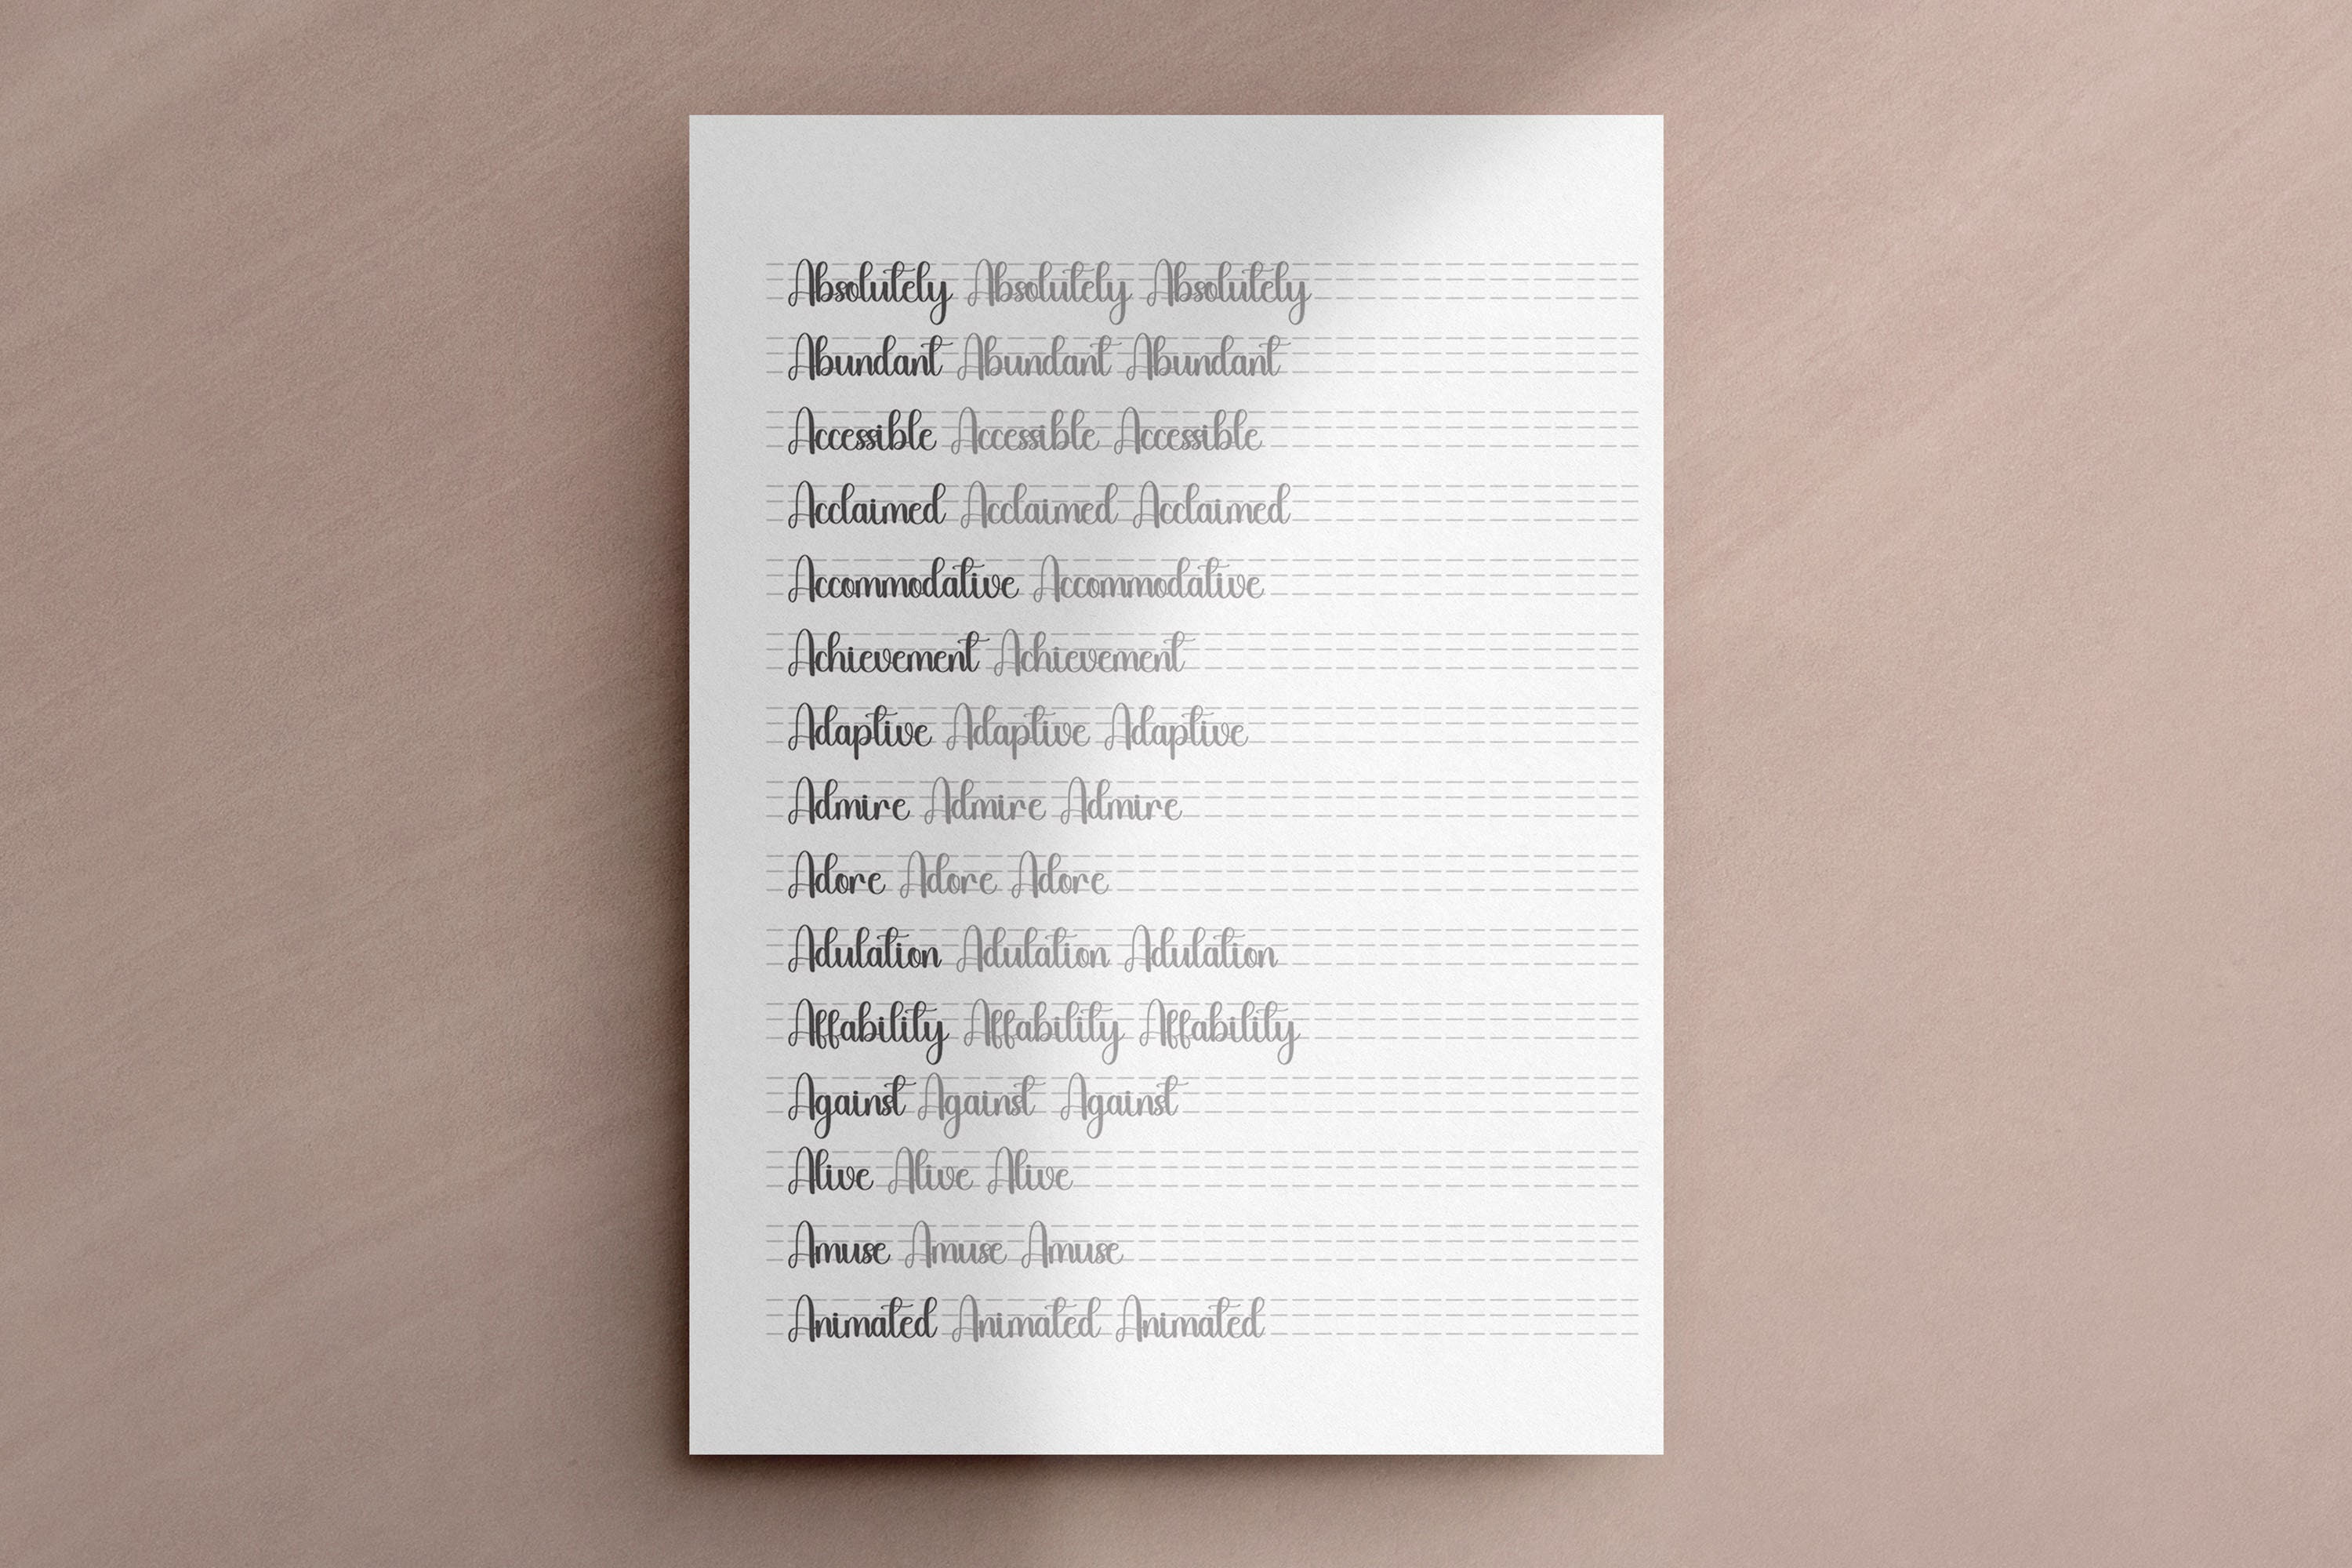 Absolutely Absolutely Absolutely
Abundant Abundant Abundant
Accessible Accessible Accessible
Acclaimed Acclaimed Acclaimed
Accommodative Accommodative
Achievement Achievement
Adaptive Adaptive Adaptive
Admire Admire Admire
Adore Adore Adore
Adulation Adulation Adulation
Affability Affability Affability
Against Against Against
Alive Alive Alive
Amuse Amuse Amuse
Animated Animated Animated